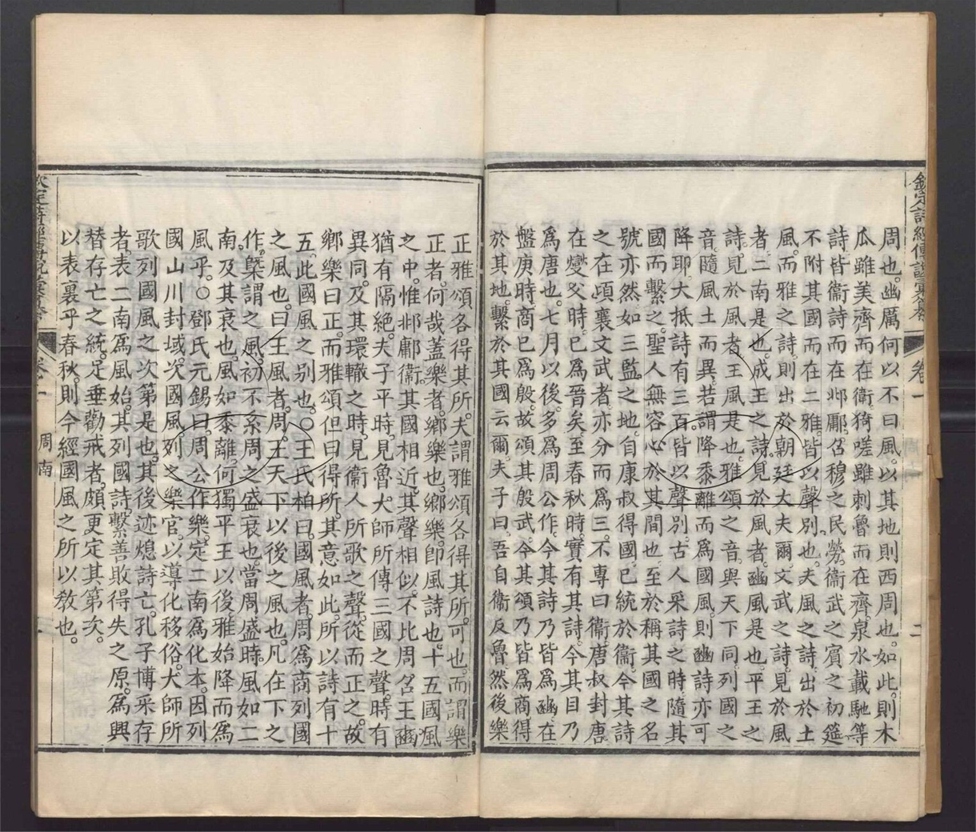 欽定詩經傳說彙纂 卷一 二
周也。幽厲何以不曰風。以其地則西周也。如此則木
瓜雖美齊而在衞猗嗟雖刺魯而在齊。泉水載馳等
詩皆衞詩而在邶鄘召穆之民勞。衞武之賓之初筵
不附其國而在二雅皆以聲別也。夫風之詩出於土
風。而雅之詩。則出於朝廷大夫爾。文武之詩。見於風
者二南是也。成王之詩見於風者。豳風是也平王之
詩。見於風者王風是也。雅頌之音。與天下同列國之
音隨風土而異。若謂降黍離而爲國風則豳詩亦可
降耶。大抵詩有三百皆以聲別。古人采詩之時隨其
國而繫之。聖人無容心於其間也至於稱其國之名
號亦然如三監之地。自康叔得國。已統於衞今其詩
之在頃襄文武者亦分而爲三。不專曰衞。唐叔封唐。
在燮父時。已爲晉矣至春秋時。實有其詩今其目乃
爲唐也。七月以後多爲周公作。今其詩乃皆爲豳在
盤庚時商已爲殷。故頌其殷武。今其頌乃皆爲商得
於其地。繫於其國云爾。夫子曰。吾自衞反魯然後樂
正雅頌各得其所。夫謂雅頌各得其所。可也。而謂樂
正者。何哉蓋樂者。鄉樂也。鄉樂卽風詩也。十五國風
之中。惟邶鄘衞。其國相近。其聲相似。不比周召王豳
猶有隔絶。夫子平時。見魯大師所傳三國之聲。時有
異同。及其環轍之時。見衞人所歌之聲。從而正之。故
鄉樂曰正。而雅頌但曰得所。其意如此。所以詩有十
五。此國風之別也。〇王氏柏曰。國風者。周爲商列國
之風也。曰王風者。周王天下以後之風也。凡在下之
作。槩謂之風。初不系周之盛衰也。當周盛時。風如二
南。及其衰也。風如黍離。何獨平王以後雅始降而爲
風乎。〇鄧氏元錫曰。周公作樂。定二南爲化本。因列
國山川封域。次國風列之樂官。以導化移俗。大師所
歌列國風之次第是也。其後迹熄詩亡。孔子博采存
者。表二南爲風始。其列國詩。繫善敗得失之原。爲興
替存亡之統。定垂勸戒者。頗更定其第次。
以表裏乎春秋。則今經國風之所以敎也。
卷一 周南 二